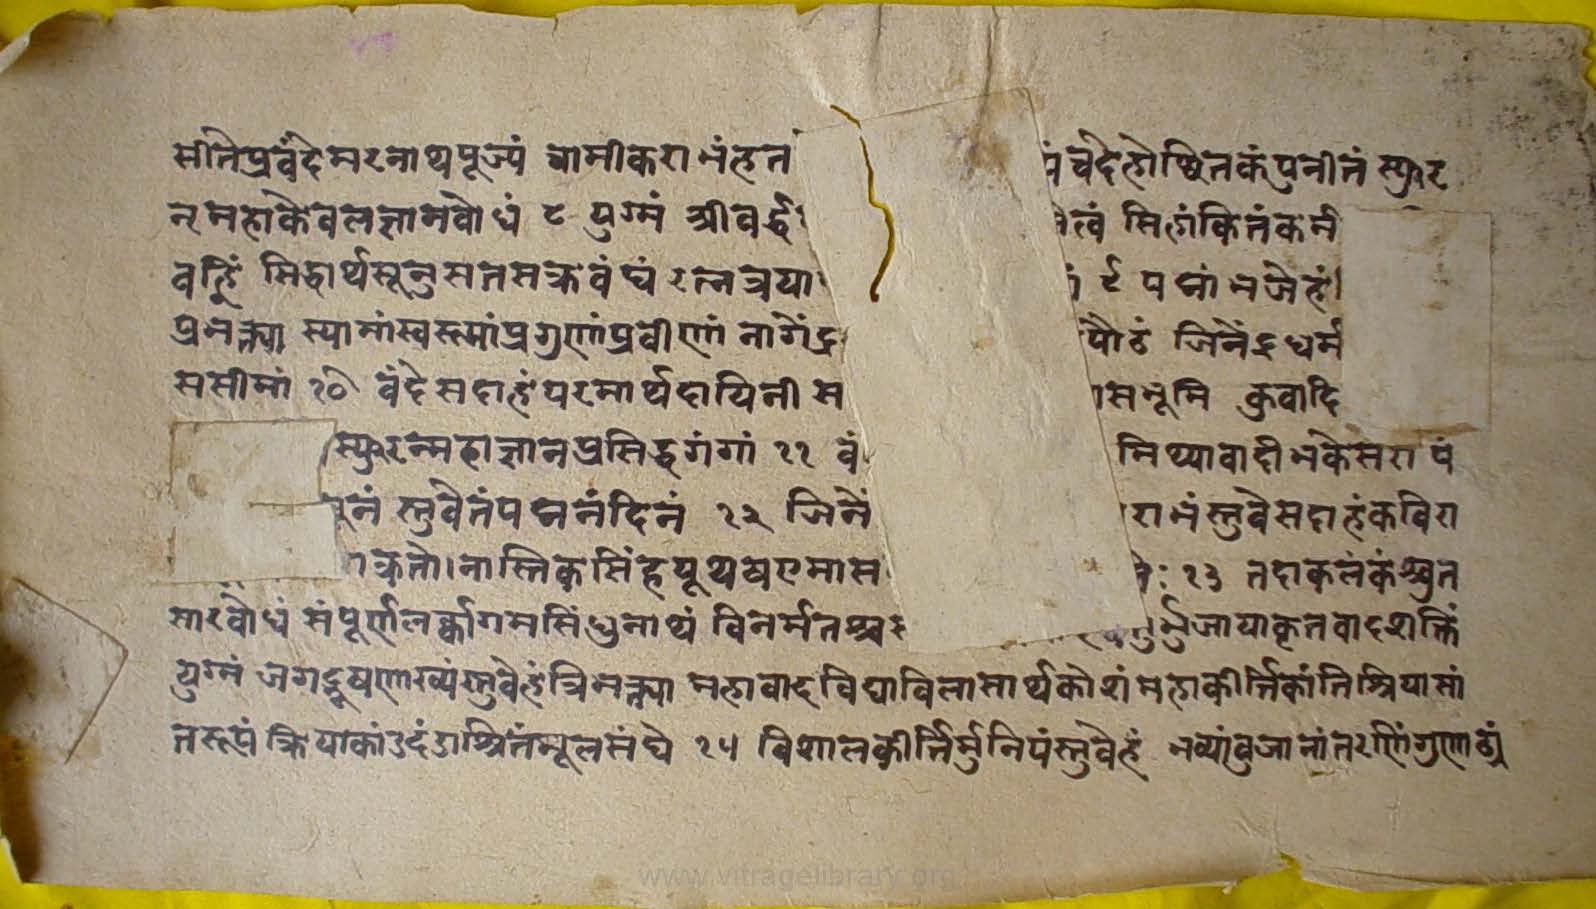 सीतेप्रवंदेमरनाथपूज्यं चामीकराभंहत पंचदेहोष्थितकंपुनीतं स्फुर
न्महाकेवलज्ञामवोधं ८ युग्मं श्रीवर्द्ध सिहांकितंकर्म
वह्निं सिद्धार्थसूनुसतसक्रवंघं रत्नत्रया ९ पद्मांभजेहं।
प्रभक्त्या स्यामांस्वरूपांप्रगुणांप्रवीणां नागेंद्र जिनेंद्रधर्म
ससीमां १० वंदेसदाहंपरमार्थदायिनी स सभूमि कुवादि
स्फुरन्महाज्ञानप्रसिद्धगंगां ११ वं मिथ्यावादीभकेसरा पं
स्तुवेतंपद्मनंदिनं १२ जिनें राभंस्तुवेसदाहंकविरा
नास्तिकसिंहयूथषएमास १३ तदाकलंकंश्रुत
सारवोधं संपूर्णलर्क्कागमसिंधुनाथं विनर्मतश्च र्भुजायाकृतवादशक्तिं
युग्मं जगद्भूषणाख्यंस्तुवेहंत्रिभक्त्या महावादविद्याविलासार्थकोशं महाकीर्त्तिकांतिश्रियासां
तरूपं क्रियाकांउदंडाश्रितंमूलसंघे १५ विशालकीर्त्तिर्मुनिपंस्तुवेहं भव्यांवुजानांतरणिंगुणाढ्यं
www.vitragelibrary.org